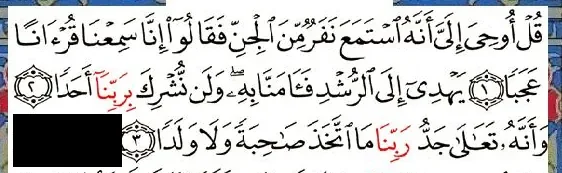 قُلْ أُوحِىَ إِلَىَّ أَنَّهُ ٱسْتَمَعَ نَفَرٌ مِّنَ ٱلْجِنِّ فَقَالُوٓا۟ إِنَّا سَمِعْنَا قُرْءَانًا
عَجَبًا ۝١ يَهْدِىٓ إِلَى ٱلرُّشْدِ فَـَٔامَنَّا بِهِۦ ۖ وَلَن نُّشْرِكَ بِرَبِّنَآ أَحَدًا ۝٢
وَأَنَّهُۥ تَعَـٰلَىٰ جَدُّ رَبِّنَا مَا ٱتَّخَذَ صَـٰحِبَةً وَلَا وَلَدًا ۝٣